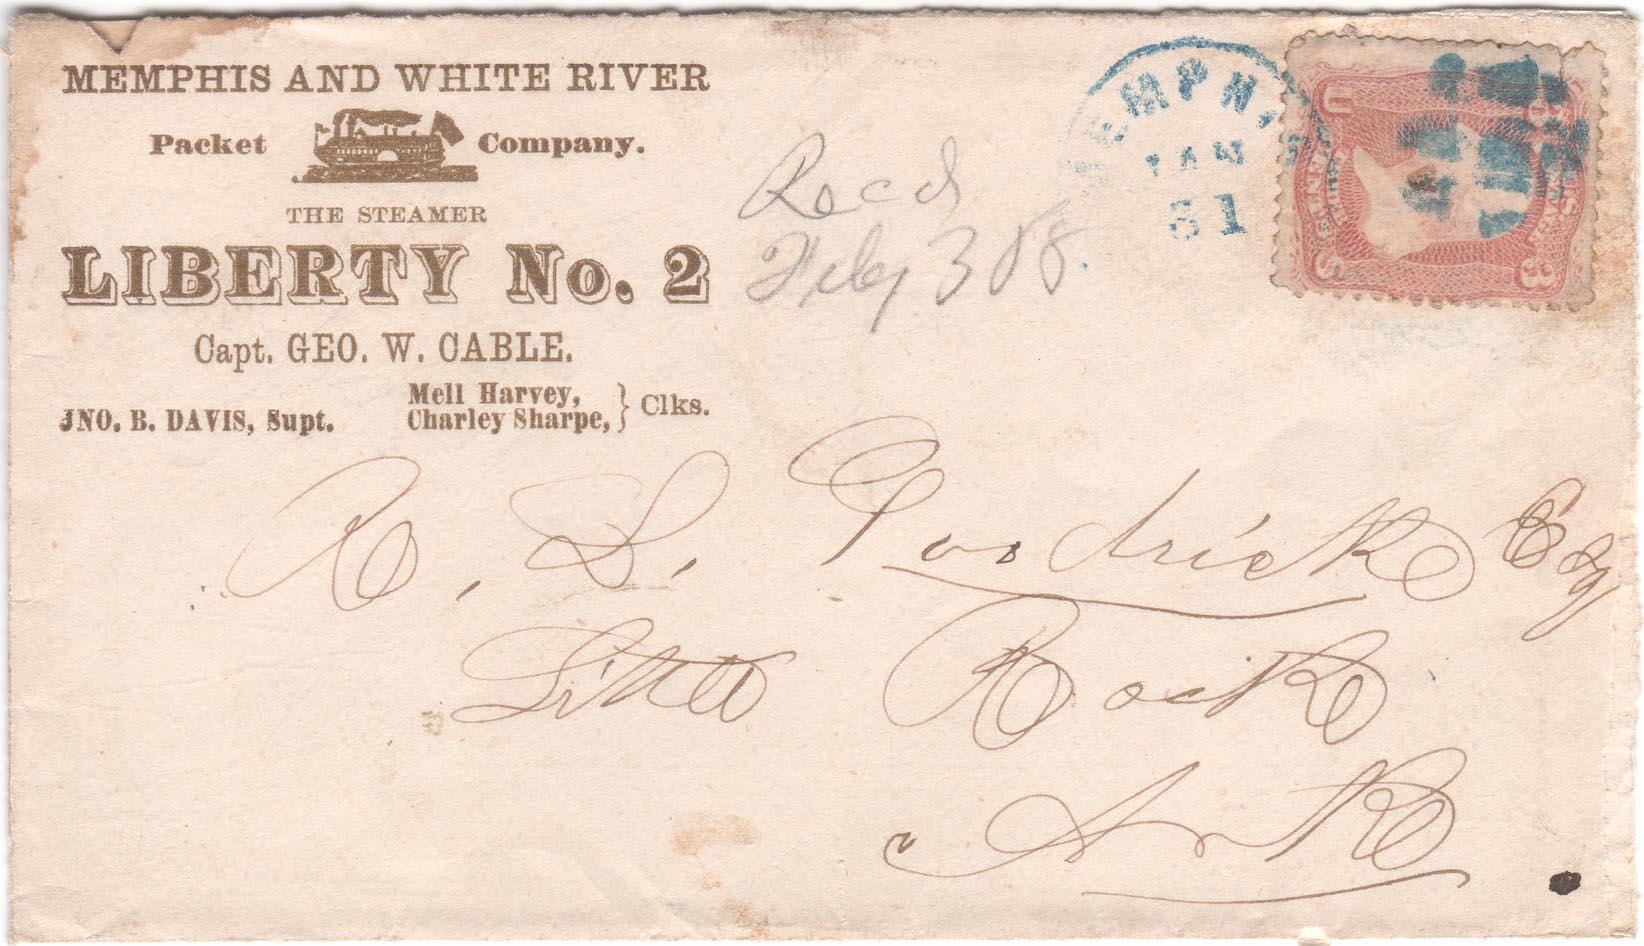 MEMPHIS AND WHITE RIVER
Packet Company.
THE STEAMER
LIBERTY No. 2
Capt. GEO. W. CABLE.
JNO. B. DAVIS, Supt.
Mell Harvey,
Charley Sharpe, } Clks.
Recd
Feby 3
MEMPHIS
JAN
31
U S
3 CENTS 3
R. S. Goodrick Esq
Little Rock
Ark